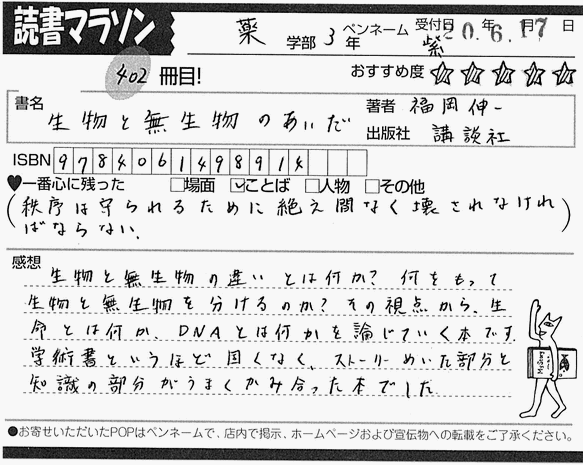 読書マラソン
薬 学部 3 年 ペンネーム 紫 受付日 20年 6.月17日
402 冊目!
おすすめ度 ☆☆☆☆☆
書名 生物と無生物のあいだ
著者 福岡伸一
出版社 講談社
ISBN 9784061498914
♥一番心に残った □場面 ☑ことば □人物 □その他
(秩序は守られるために絶え間なく壊されなけれ
ばならない。)
感想
生物と無生物の違いとは何か?何をもって
生物と無生物を分けるのか?その視点から、生
命とは何か、DNAとは何かを論じていく本です。
学術書というほど固くなく、ストーリーめいた部分と
知識の部分がうまくかみ合った本でした
●お寄せいただいたPOPはペンネームで、店内で掲示、ホームページおよび宣伝物への転載をご了承ください。